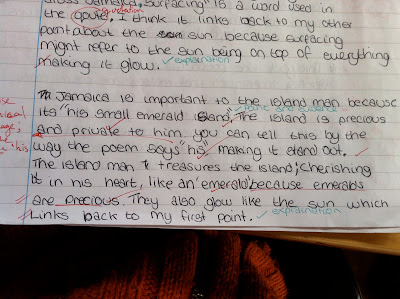 "surfacing" is a word used in
quotation
the quote, I think it links back to my other
point about the sun because surfacing
might refer to the sun being on top of everything
making it glow. ✓explanation
Jamaica is important to the island man because
its "his small emerald island," The island is precious
and private to him, you can tell this by the
way the poem says "his" making it stand out. ✓
The island man treasures the island; cherishing
it in his heart, like an emerald because emeralds
are precious. They also glow like the sun which
Links back to my first point. ✓explanation